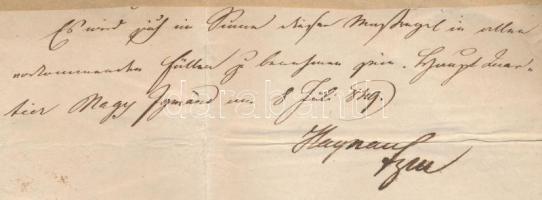 Es wird sich im Sinne dieser Maßregel in allen
vorkommenden Fällen zu benehmen sein. Haupt Quar-
tier Nagy Igmánd am 8 Juli 849.
Haynau
FZM
Darabanth